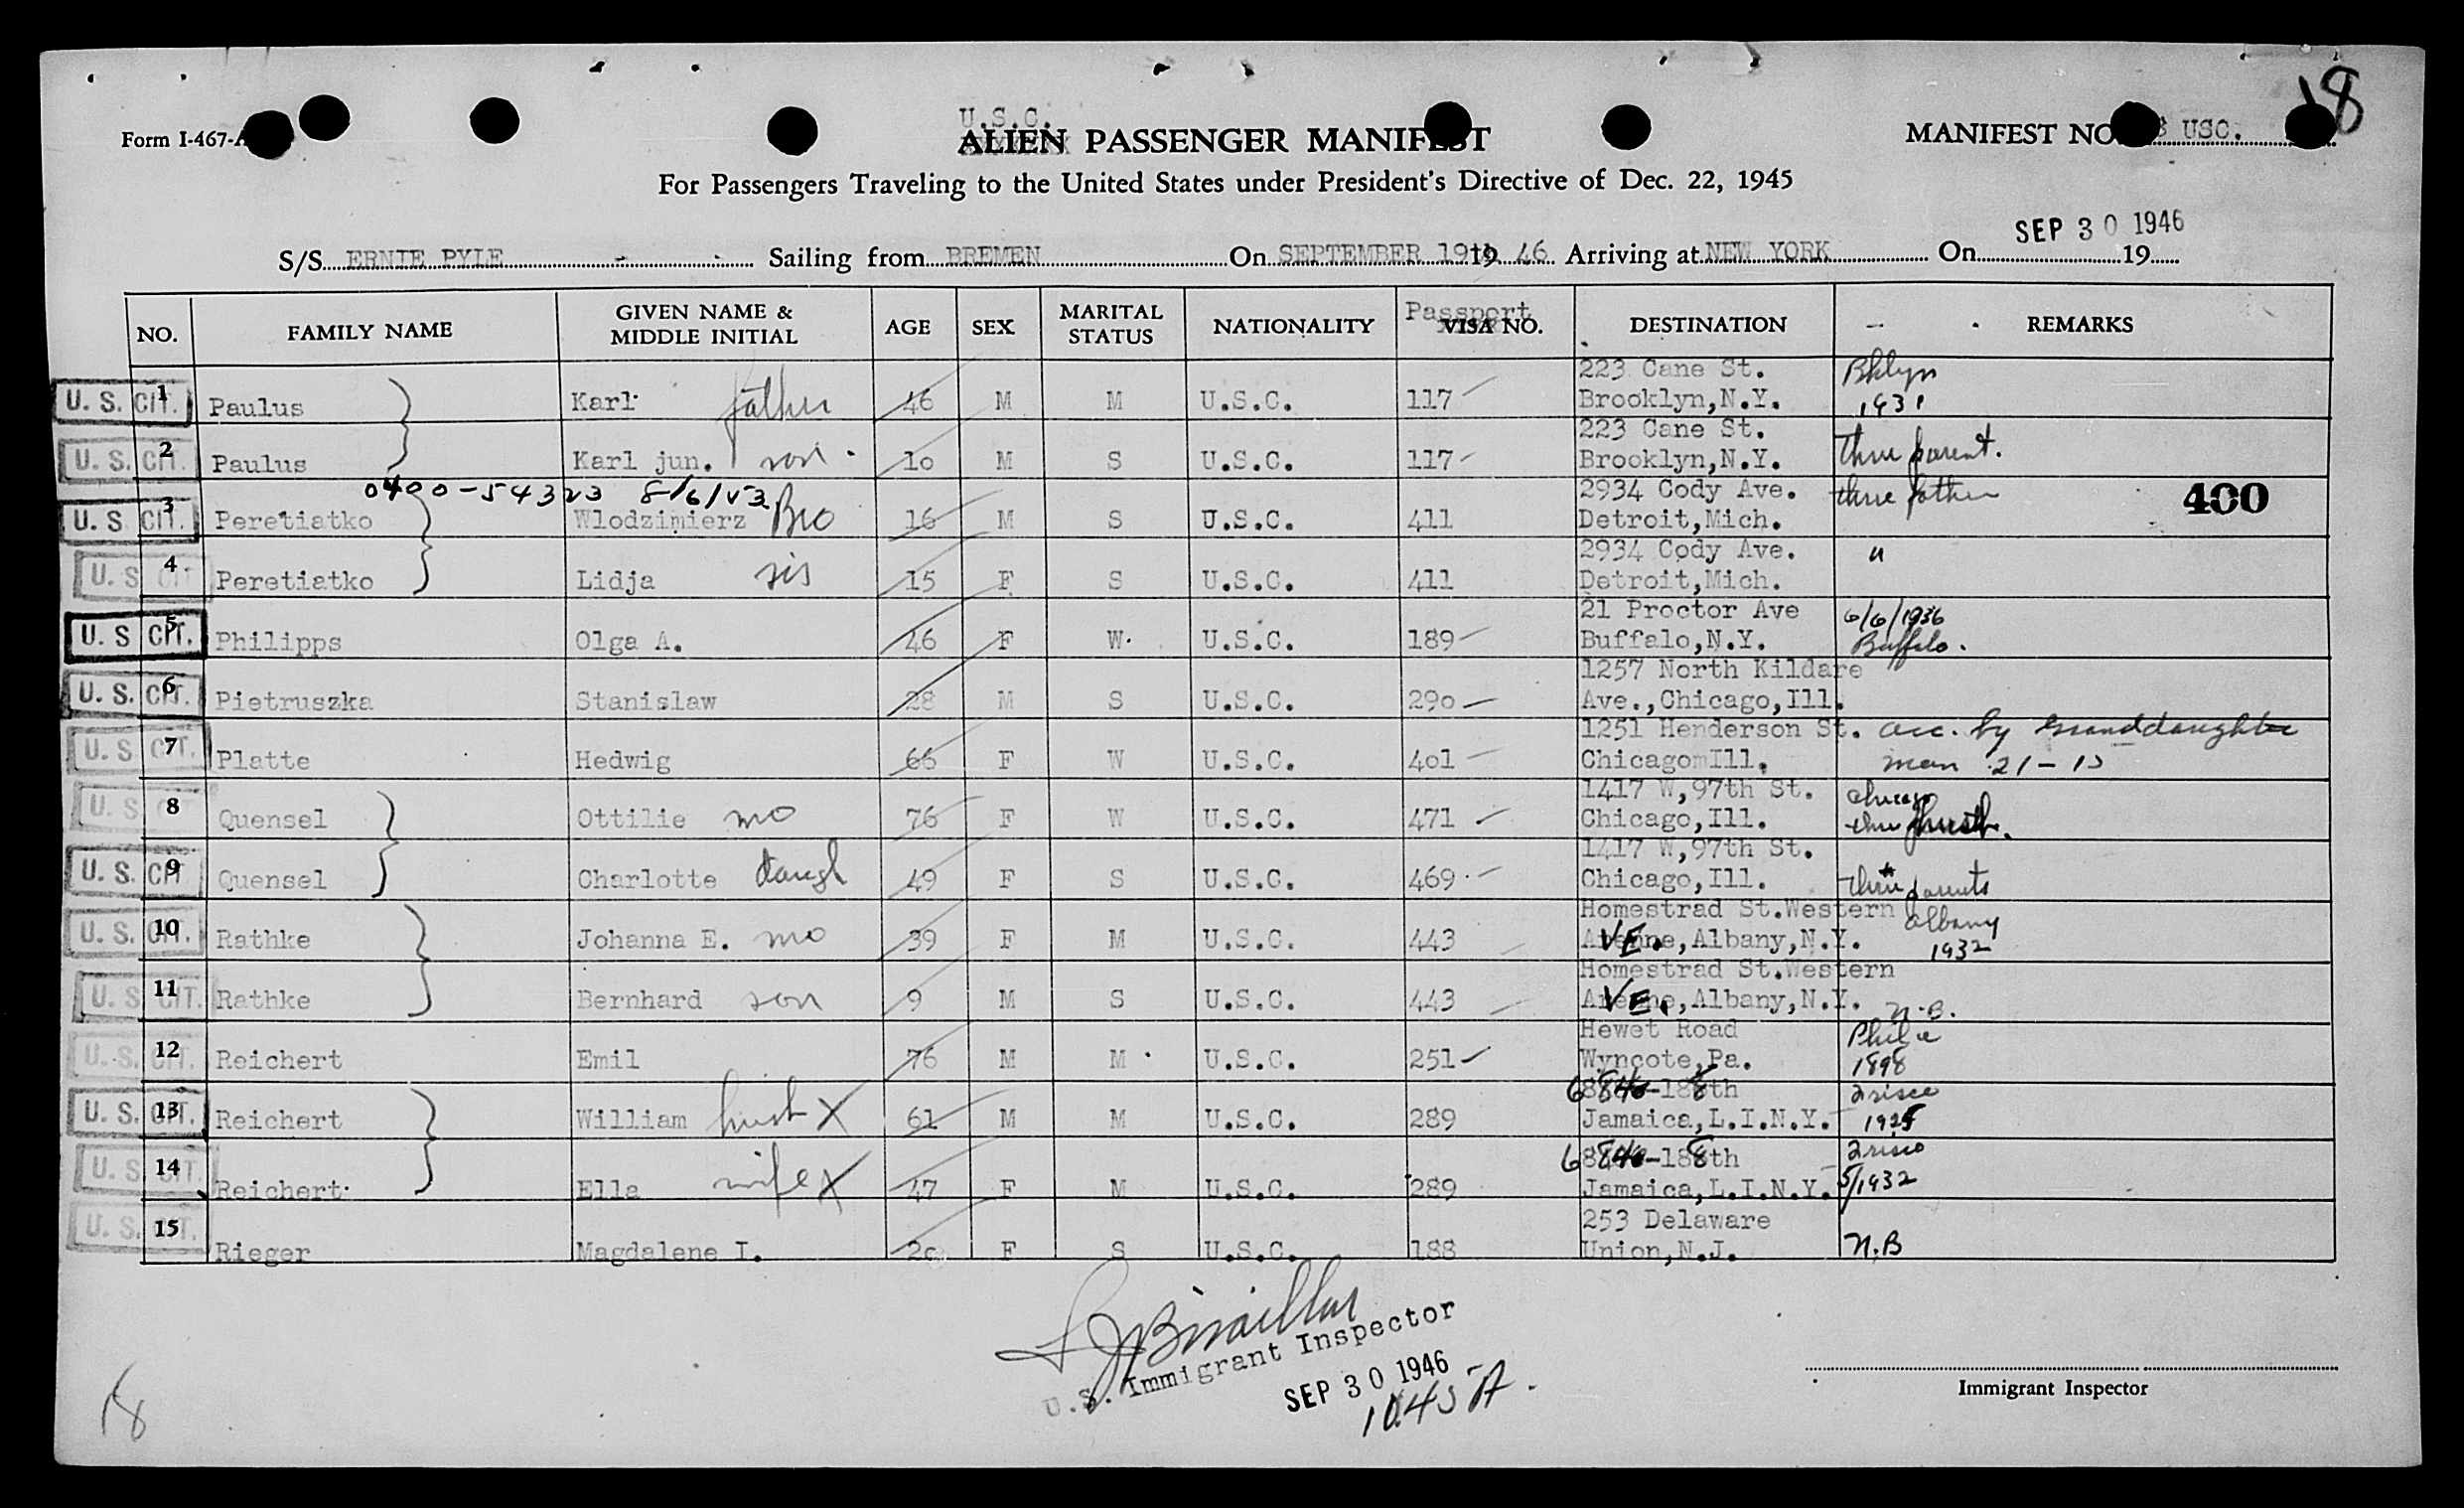 18
U.S.C.
Form I-467-A
ALIEN PASSENGER MANIFEST
MANIFEST NO. USC.
For Passengers Traveling to the United States under President's Directive of Dec. 22, 1945
SEP 30 1946
S/S ERNIE PYLE Sailing from BREMEN On SEPTEMBER 19th 19 46 Arriving at NEW YORK On 19
NO. FAMILY NAME GIVEN NAME & MIDDLE INITIAL AGE SEX MARITAL STATUS NATIONALITY Passport VISA NO. DESTINATION REMARKS
U. S. CIT. 1 Paulus Karl father 46 M M U.S.C. 117 223 Cane St. Brooklyn,N.Y. Bklyn 1931
U. S. CIT. 2 Paulus Karl jun. son 10 M S U.S.C. 117 223 Cane St. Brooklyn,N.Y. thru parent.
0400-54323 8/6/53
U. S. CIT. 3 Peretiatko Wlodzimierz Bro 16 M S U.S.C. 411 2934 Cody Ave. Detroit,Mich. thru father 400
U. S. CIT. 4 Peretiatko Lidja sis 15 F S U.S.C. 411 2934 Cody Ave. Detroit,Mich. "
U. S. CIT. 5 Philipps Olga A. 46 F W U.S.C. 189 21 Proctor Ave Buffalo,N.Y. 6/6/1936 Buffalo.
U. S. CIT. 6 Pietruszka Stanislaw 28 M S U.S.C. 290 1257 North Kildare Ave.,Chicago,Ill.
U. S. CIT. 7 Platte Hedwig 66 F W U.S.C. 401 1251 Henderson St. ChicagomIll. acc. by granddaughter man 21-15
U. S. CIT. 8 Quensel Ottilie mo 76 F W U.S.C. 471 1417 W,97th St. Chicago,Ill. Chicago thru
U. S. CIT. 9 Quensel Charlotte daugh 49 F S U.S.C. 469 1417 W,97th St. Chicago,Ill. thru parents
U. S. CIT. 10 Rathke Johanna E. mo 39 F M U.S.C. 443 Homestrad St.Western AVE., Albany,N.Y. Albany 1932
U. S. CIT. 11 Rathke Bernhard son 9 M S U.S.C. 443 Homestrad St.Western AVE., Albany,N.Y. N.B.
U. S. CIT. 12 Reichert Emil 76 M M U.S.C. 251 Hewet Road Wyncote,Pa. Phila 1898
U. S. CIT. 13 Reichert William husb X 61 M M U.S.C. 289 188th Jamaica,L.I.N.Y. Frisco 1925
U. S. CIT. 14 Reichert Ella wife X 47 F M U.S.C. 289 188th Jamaica,L.I.N.Y. Frisco 5/1932
U. S. CIT. 15 Rieger Magdalene I. 20 F S U.S.C. 188 253 Delaware Union,N.J. N.B
U.S. Immigrant Inspector
SEP 30 1946
1045 A.
Immigrant Inspector
18